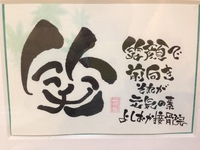 笑
笑顔で
前向き
それが
元気の素
よしあか接骨院